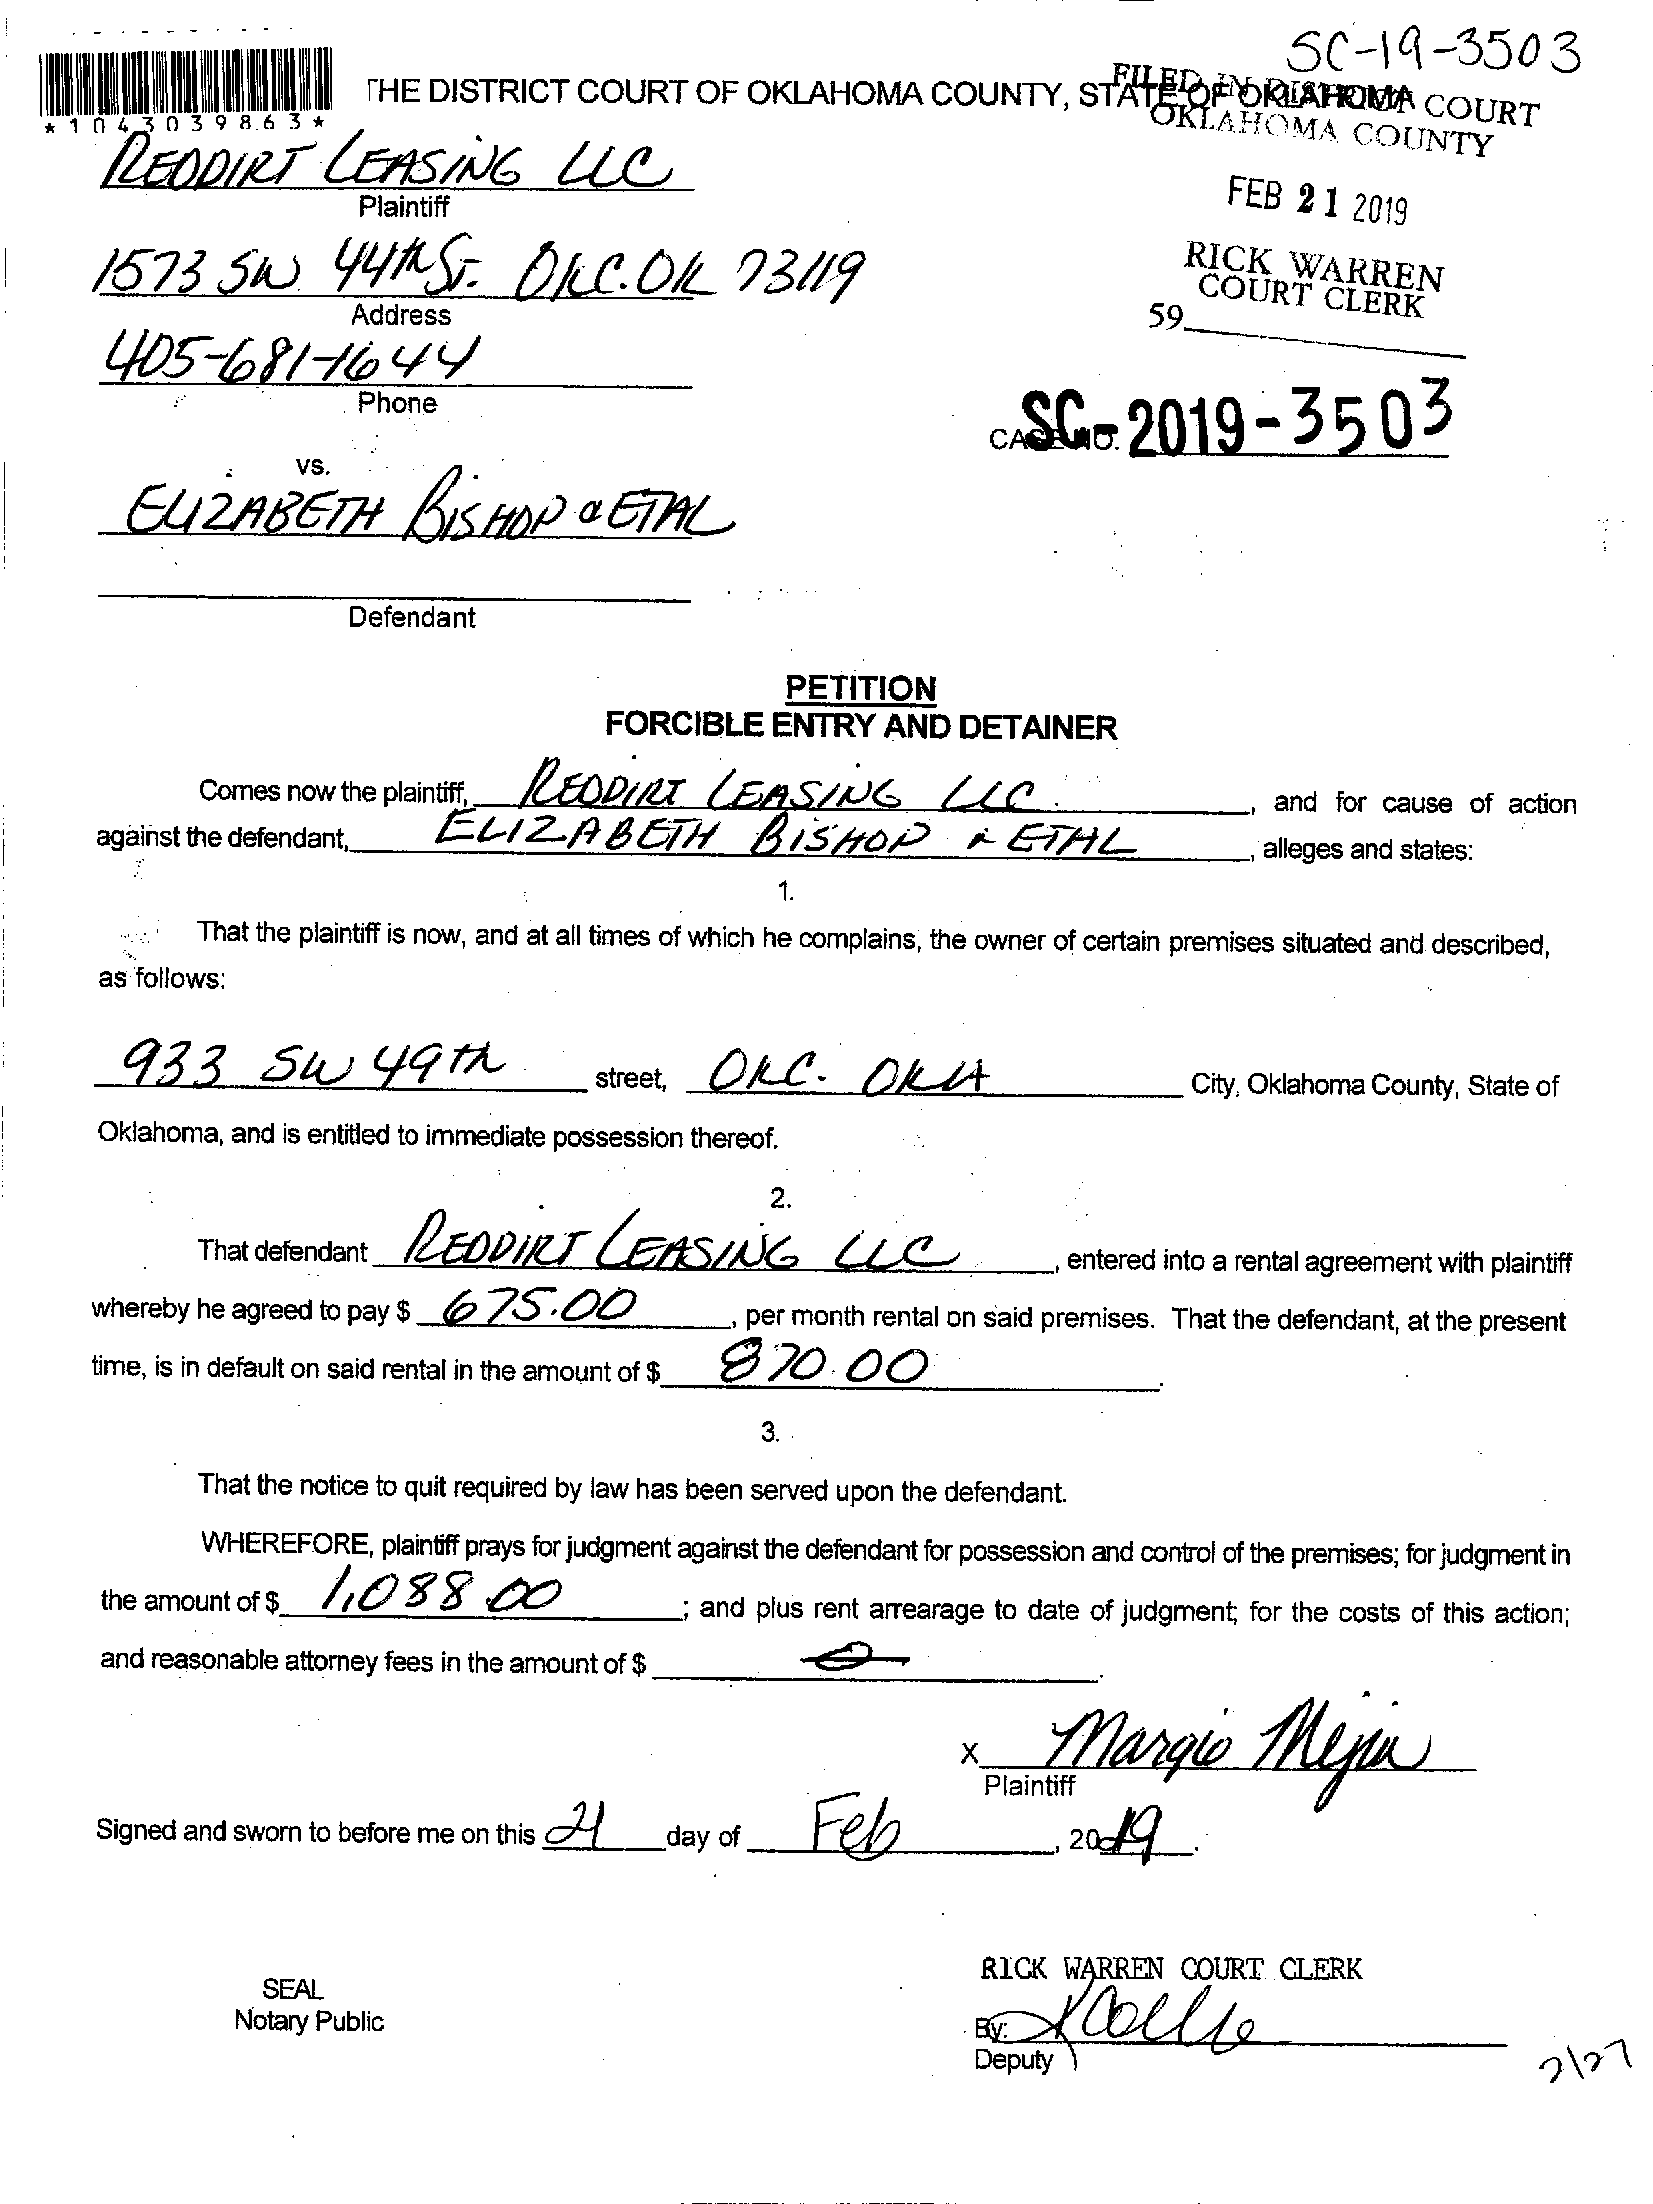 SC-19-3503
THE DISTRICT COURT OF OKLAHOMA COUNTY, STATE OF OKLAHOMA
FILED IN DISTRICT COURT
OKLAHOMA COUNTY
*1043039863*
REDDIRT LEASING LLC
Plaintiff
FEB 21 2019
1573 SW 44th ST. OKC. OK 73119
Address
RICK WARREN
COURT CLERK
59
405-681-1644
Phone
CASE NO. SC-2019-3503
vs.
ELIZABETH BISHOP & ETAL
Defendant
PETITION
FORCIBLE ENTRY AND DETAINER
Comes now the plaintiff, REDDIRT LEASING LLC, and for cause of action
against the defendant, ELIZABETH BISHOP & ETAL, alleges and states:
1.
That the plaintiff is now, and at all times of which he complains, the owner of certain premises situated and described,
as follows:
933 SW 49th street, OKC. OKLA City, Oklahoma County, State of
Oklahoma, and is entitled to immediate possession thereof.
2.
That defendant REDDIRT LEASING LLC, entered into a rental agreement with plaintiff
whereby he agreed to pay $ 675.00, per month rental on said premises. That the defendant, at the present
time, is in default on said rental in the amount of $ 870.00.
3.
That the notice to quit required by law has been served upon the defendant.
WHEREFORE, plaintiff prays for judgment against the defendant for possession and control of the premises; for judgment in
the amount of $ 1,088.00; and plus rent arrearage to date of judgment; for the costs of this action;
and reasonable attorney fees in the amount of $ 0.
X Margio Mejia
Plaintiff
Signed and sworn to before me on this 21 day of Feb, 2019.
RICK WARREN COURT CLERK
SEAL
Notary Public
By:
Deputy
2/27